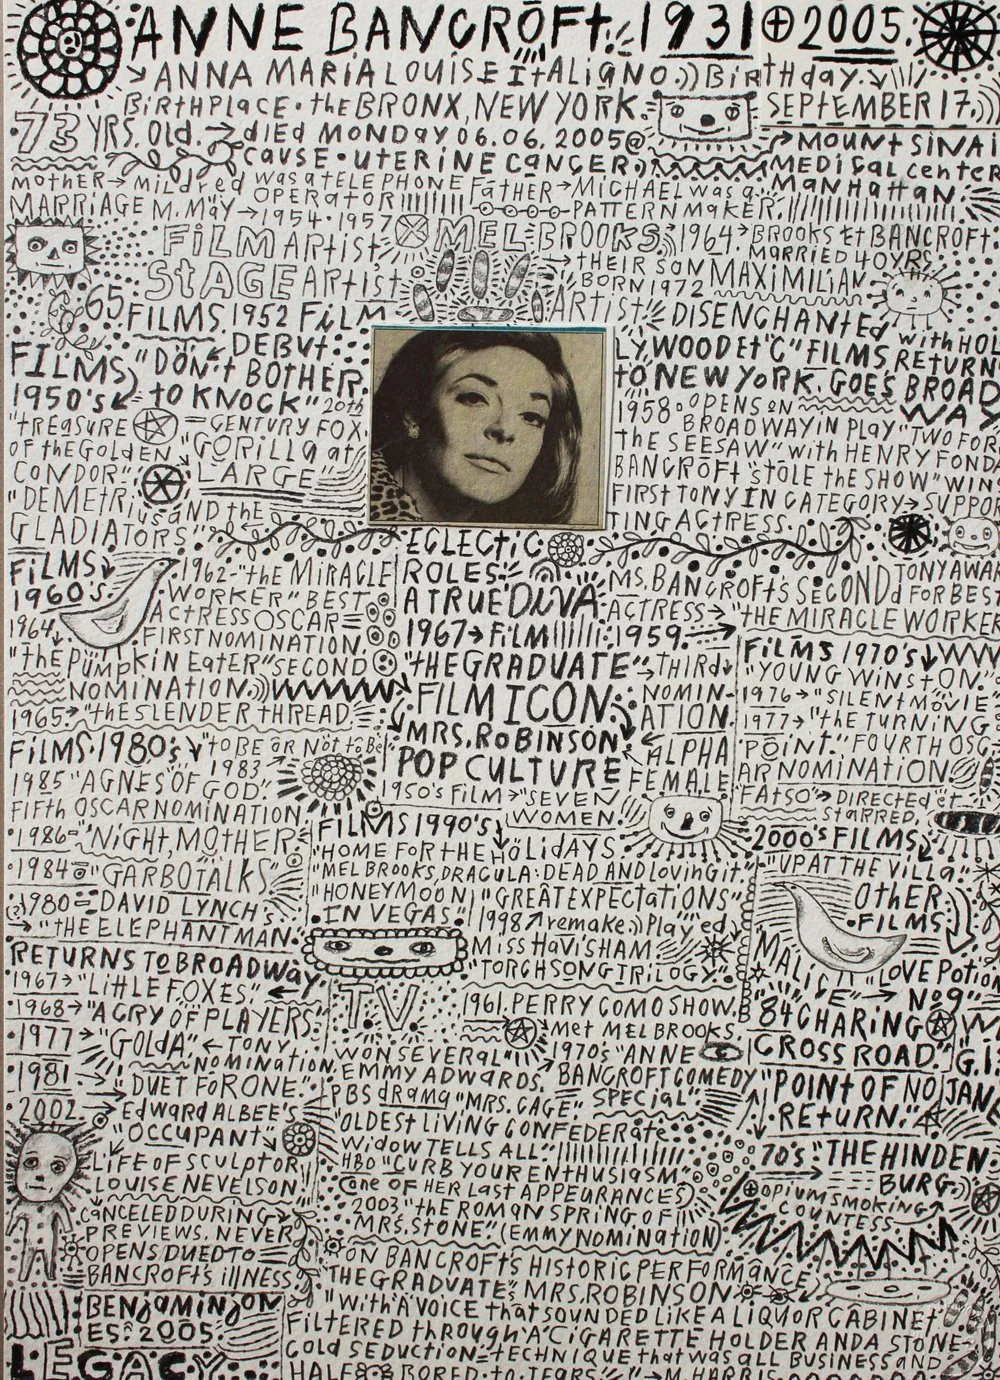 ANNE BANCROFT. 1931 2005.
ANNA MARIA LOUISE ItALiANO.)) BirtHday.
BiRTHPLACE · the BRONX, NEW YORK. SEPtEMBER 17.
73 YRS. OLd. died MONDAY 06.06.2005@ MOUNT SINAI
CAUSE · UTERINE CANCER. MEDICAL center
MANHAttAN
mother → mildred was a tELEPHONE OPERATOR FatHER → MICHAEL was a PATTERN MAKER.
MARRIAGE M. MAY → 1954 · 1957 MEL BROOKS. 1964 → BROOKS Et BANCROFT
MARRIED 40 YRS.
FiLM ARtist
StAGE ARtist
THEIR SON MAXIMILIAN
BORN 1972
ARtist
65 FILMS. 1952 FiLM DEBUt
"DON't BOTHER
tO KNOCK" 20th
CENTURY FOX.
DISENCHANtEd with HOL
LYWOOD Et "C" FILMS, RETURN
tO NEW YORK. GOES BROAD
WAY
FILMS
1950's
"tREASURE
OF the GOLDEN
CONDOR"
"GORillA at
LARGE"
"DEMETRius AND the
GLADIATORS"
1958 · OPENS ON
BROADWAY IN PLAY "TWO FOR
the SEESAW" with HENRY FONDA
BANCROFt "StOLE tHE SHOW" WINS
FIRST TONY IN CATEGORY → SUPPOR
TING ACTRESS.
FILMS
1960's
1962 - "the MIRACLE
WORKER" BEST
ACTRESS OSCAR =
FIRST NOMINATION.
1964
"the PUMPKIN EatER" SECOND
NOMINATION.
1965 → "the SLENDER tHREAD.
ECLECtiC
ROLES
A tRUE DiVA
1967 → FiLM
"tHE GRADUATE" → THIRd
NOMIN-
ATION.
FILM ICON
MRS. ROBINSON
POP CULTURE
ALPHA
FEMALE
1950's FILM → "SEVEN
WOMEN
MS. BANCROFt's SECOND TONY AWAR
d FOR BEST
ACTRESS →
1959 → "tHE MIRACLE WORKER
FILMS 1970's
"YOUNG WINStON.
1976 → "SILENt MOViE
1977 → "the tURNING
POINt." FOURTH OSC
AR NOMINATION.
"FATSO" → DIRECTED et
StARRED.
FILMS · 1980's "tO BE OR NOt to BE
1983
1985 "AGNES OF GOD."
FIFth OSCAR NOMINATION
1986 - "NiGHt, MOTHER"
1984 "GARBO TALKS"
1980 = DAVID LYNCH's
"tHE ELEPHANT MAN
FILMS 1990's
"HOME FOR tHE HOLidAYS
"MEL BROOKS, DRACULA: DEAD AND LOViNG it
"HONEYMOON
IN VEGAS.
"GREAT EXPECtATIONS"
1998 remake.)) PLAYed
MiSS HaViSHAM
"TORCH SONG tRILOGY"
2000's FILMS
"UP AT THE VillA"
OtHER
FILMS
MALiCE" → LOVE POtion
No 9"
"84 CHARiNG
CROSS ROAD." G.I.
JANE
"POINt OF NO
RETURN."
70's "THE HINDEN
BURG.
OPIUM SMOKING
COUNtESS
RETURNS tO BROADWAY
1967 → "LittLE FOXES"
1968 → "A CRY OF PLAYERS"
1977 → "GOLdA" ← TONY
NOMINATION.
1981 → DUET FOR ONE."
2002 → EdWARd ALBEE's
"OCCUPANt"
LiFE OF SCULPtOR
LOUISE NEVELSON
CANCELED DURING
PREVIEWS. NEVER
OPENS DUE TO
BANCROFt's iLLNESS
BENJAMIN JON
ES. 2005
LEGACY
TV.
WON SEVERAL
EMMY ADWARDS.
PBS drama "MRS. CAGE."
"OLDEST LIVING CONFEDERAte
WIDOW TELLS ALL."
HBO "CURB YOUR ENTHUSIASM"
(one OF HER LAST APPEARANCES)
2003 "tHE ROMAN SPRING OF
MRS. STONE." (EMMY NOMINATION)
1961 PERRY COMO SHOW.
MEt MEL BROOKS.
1970s "ANNE
BANCROFt COMEDY
SPECiAL"
ON BANCROFt's HISTORIC PERFORMANCE
"THE GRADUATE"s MRS. ROBINSON
"With A VOICE thAt SOUNDED LIKE A LIQUOR CABINET
FILTERED thROUGH A CIGARETTE HOLDER AND A STONE-
COLD SEDUCTION = TECHNIQUE thAt WAS ALL BUSINESS AND
HALF BORED · to · TEARS" → M. HARRIS